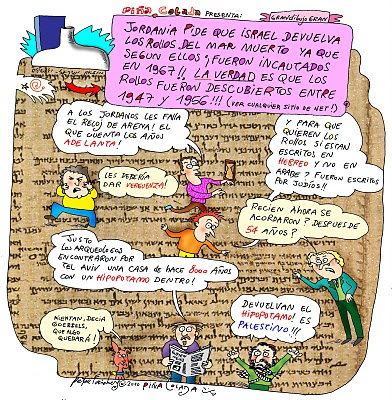 PIÑA COLADA PRESENTA: GRANdibujoGRAN
JORDANIA PIDE QUE ISRAEL DEVUELVA
LOS ROLLOS DEL MAR MUERTO YA QUE
SEGUN ELLOS ¡FUERON INCAUTADOS
EN 1967!! LA VERDAD ES QUE LOS
ROLLOS FUERON DESCUBIERTOS ENTRE
1947 y 1956!!! (VER CUALQUIER SITIO DE NET!)
A LOS JORDANOS LES FALLA
EL RELOJ DE ARENA! EL
QUE CUENTA LOS AÑOS
ADELANTA!
Y PARA QUE
QUIEREN LOS
ROLLOS SI ESTAN
ESCRITOS EN
HEBREO Y NO EN
ARABE? FUERON ESCRITOS
POR JUDIOS!!
LES DEBERIA
DAR VERGUENZA!
RECIEN AHORA SE
ACORDARON? DESPUES DE
54 AÑOS?
JUSTO
LOS ARQUEOLOGOS
ENCONTRARON POR
TEL AVIV UNA CASA DE HACE 8000 AÑOS
CON UN HIPOPOTAMO DENTRO!
DEVUELVAN EL
HIPOPOTAMO! ES
PALESTINO!!!
MIENTAN, DECIA
GOEBBELS,
QUE ALGO
QUEDARÁ!
2010 PIÑA COLADA